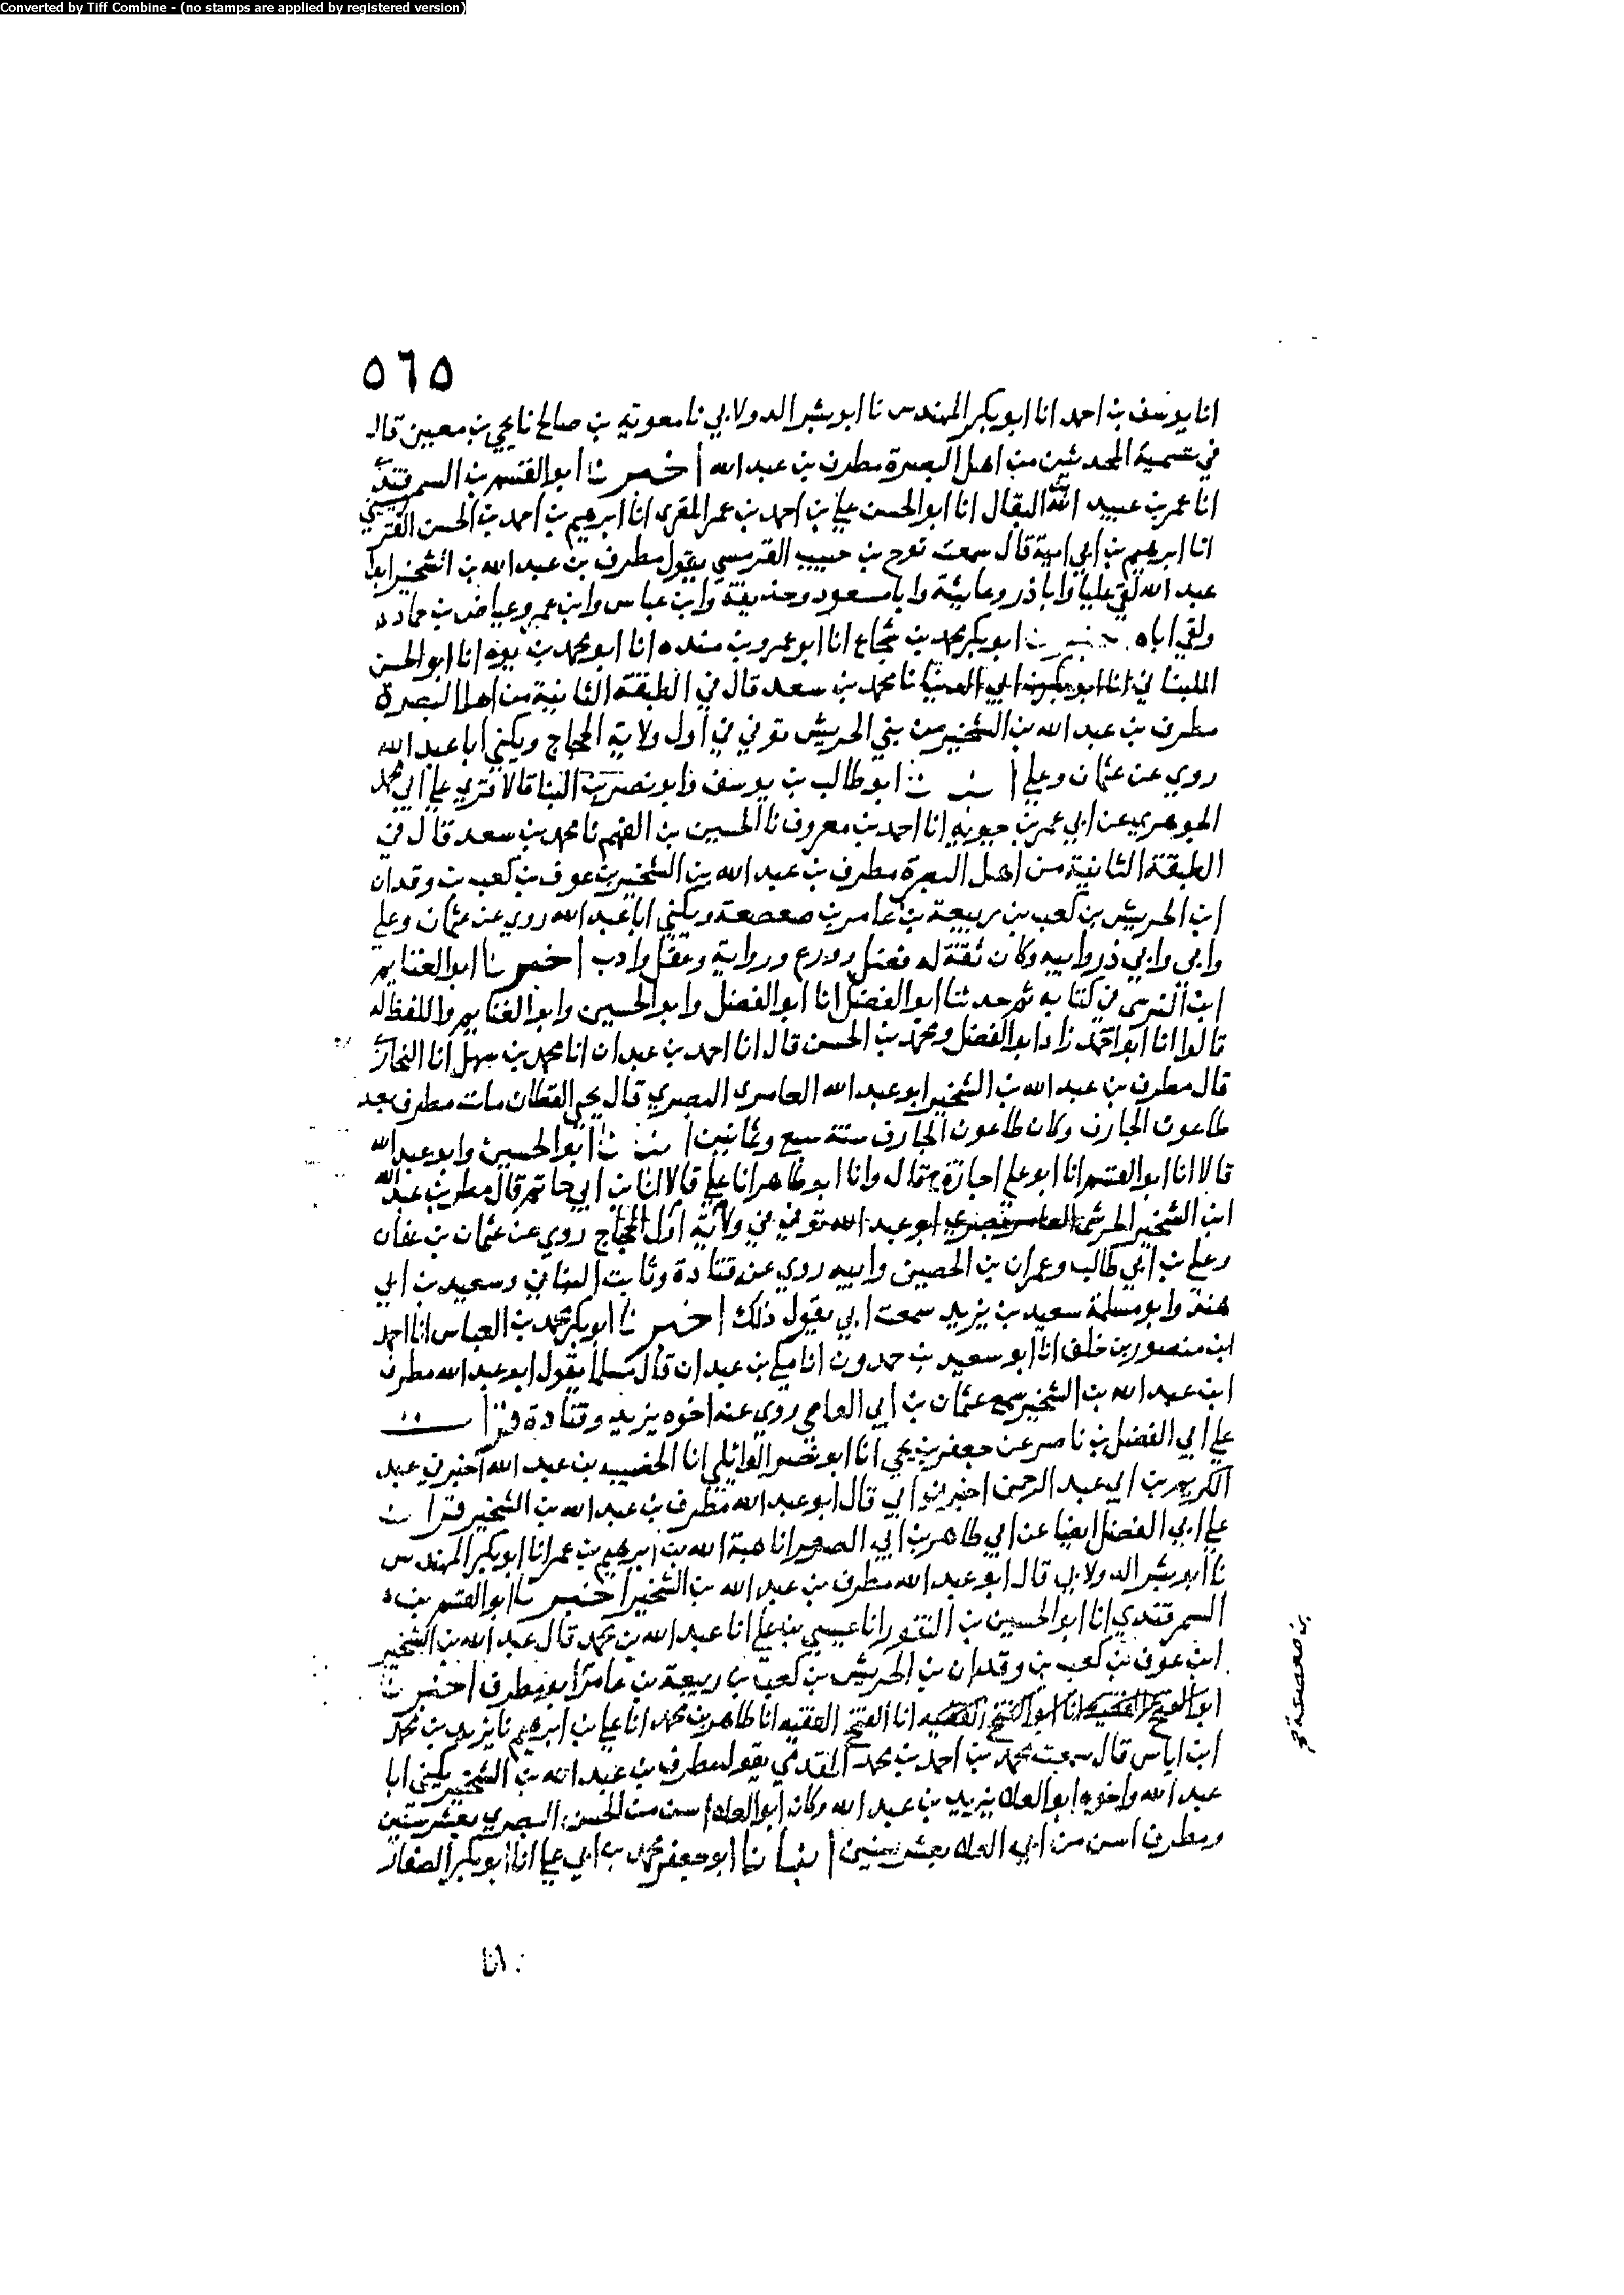 Converted by Tiff Combine - (no stamps are applied by registered version)
٥٦٥
انا يوسف بن احمد انا ابو بكر المهندس نا ابو بشر الدولابي نا معوية بن صالح نا يحيى بن معين قال
في تسمية المحدثين من اهل البصرة مطرف بن عبد الله اخبرنا ابو القسم بن السمرقندي
انا عمر بن عبيد الله البقال انا ابو الحسن علي بن احمد بن عمر المقرى انا ابرهيم بن احمد بن الحسن القرميسيني
انا ابرهيم بن ابي امية قال سمعت نوح بن حبيب القومسي يقول مطرف بن عبد الله بن الشخير ابو
عبد الله لقي عليا وابا ذر وعايشة وابا مسعود وحذيفة وابن عباس وابن عمرو وعياض بن حماده
ولقي اباه اخبرنا ابو بكر محمد بن شجاع انا ابو عمرو بن منده انا ابو محمد بن يوه انا ابو الحسن
اللبناني انا ابو بكر بن ابي الدنيا نا محمد بن سعد قال في الطبقة الثانية من اهل البصرة
مطرف بن عبد الله بن الشخير من بني الحريش توفي في اول ولاية الحجاج ويكنى ابا عبد الله
روى عن عثمان وعلي ابو طالب بن يوسف وابو نصر بن البنا قالا قرى علي ابي محمد
الجوهري عن ابي عمر بن حيويه انا احمد بن معروف نا الحسين بن الفهم نا محمد بن سعد قال في
الطبقة الثانية من اهل البصرة مطرف بن عبد الله بن الشخير بن عوف بن كعب بن وقدان
ابن الحريش بن كعب بن ربيعة بن عامر بن صعصعة ويكنى ابا عبد الله روى عن عثمان وعلي
وابى وابي ذر وابيه وكان ثقة له فضل وورع ورواية وعقل وادب اخبرنا ابو الغنايم
ابن النرسى في كتابه ثم حدثنا ابو الفضل انا ابو الفضل وابو الحسين وابو الغنايم واللفظ له
قالوا انا ابو احمد زاد ابو الفضل ومحمد بن الحسن قال انا احمد بن عبدان انا محمد بن سهل انا البخاري
قال مطرف بن عبد الله بن الشخير ابو عبد الله العامرى البصري قال يحيى القطان مات مطرف بعد
طاعون الجارف وكان طاعون الجارف سنة سبع وثمانين ابو الحسين وابو عبد الله
قالا انا ابو القسم انا ابو علي اجازة ح قال وانا ابو طاهر انا علي قالا انا بن ابي حاتم قال مطرف بن عبد الله
ابن الشخير الحرشى العامرى بصري ابو عبد الله توفي في ولاية اول الحجاج روى عن عثمان بن عفان
وعلي بن ابي طالب وعمران بن الحصين وابيه روى عنه قتادة وثابت البناني وسعيد بن ابي
هند وابو مسلمة سعيد بن يزيد سمعت ابي يقول ذلك اخبرنا ابو بكر محمد بن العباس انا احمد
ابن منصور بن خلف انا ابو سعيد بن حمدون انا مكي بن عبدان قال مسلما يقول ابو عبد الله مطرف
ابن عبد الله بن الشخير سمع عثمان بن ابي العاصي روى عنه اخوه يزيد وقتادة قرات
علي ابي الفضل بن ناصر عن جعفر بن يحيى انا ابو نصر الوائلي انا الخصيب بن عبد الله اخبرني عبد
الكريم بن ابي عبد الرحمن اخبرني ابي قال ابو عبد الله مطرف بن عبد الله بن الشخير قرات
علي ابي الفضل ايضا عن ابي طاهر بن ابي الصقر انا هبة الله بن ابرهيم بن عمر انا ابو بكر المهندس
نا ابو بشر الدولابي قال ابو عبد الله مطرف بن عبد الله بن الشخير اخبرنا ابو القسم بن
السمرقندي انا ابو الحسين بن النقور انا عيسى بن علي انا عبد الله بن محمد قال عبد الله بن الشخير
ابن عوف بن كعب بن وقدان بن الحريش بن كعب بن ربيعة بن عامر ابو مطرف اخبرنا
ابو الفتح الفقيه انا ابو الفتح الفقيه انا الفتح الفقيه انا طاهر بن محمد انا علي بن ابرهيم نا يزيد بن محمد
ابن اياس قال سمعت محمد بن احمد بن محمد المقدمي يقول مطرف بن عبد الله بن الشخير يكنى ابا
عبد الله واخوه ابو العلا يزيد بن عبد الله وكان ابو العلا اسن من الحسن البصري بعشر سنين
ومطرف اسن من ابي العلا بعشر سنين انبانا ابو جعفر محمد بن ابي علي انا ابو بكر الصفار
بن صعصعة صح
انا